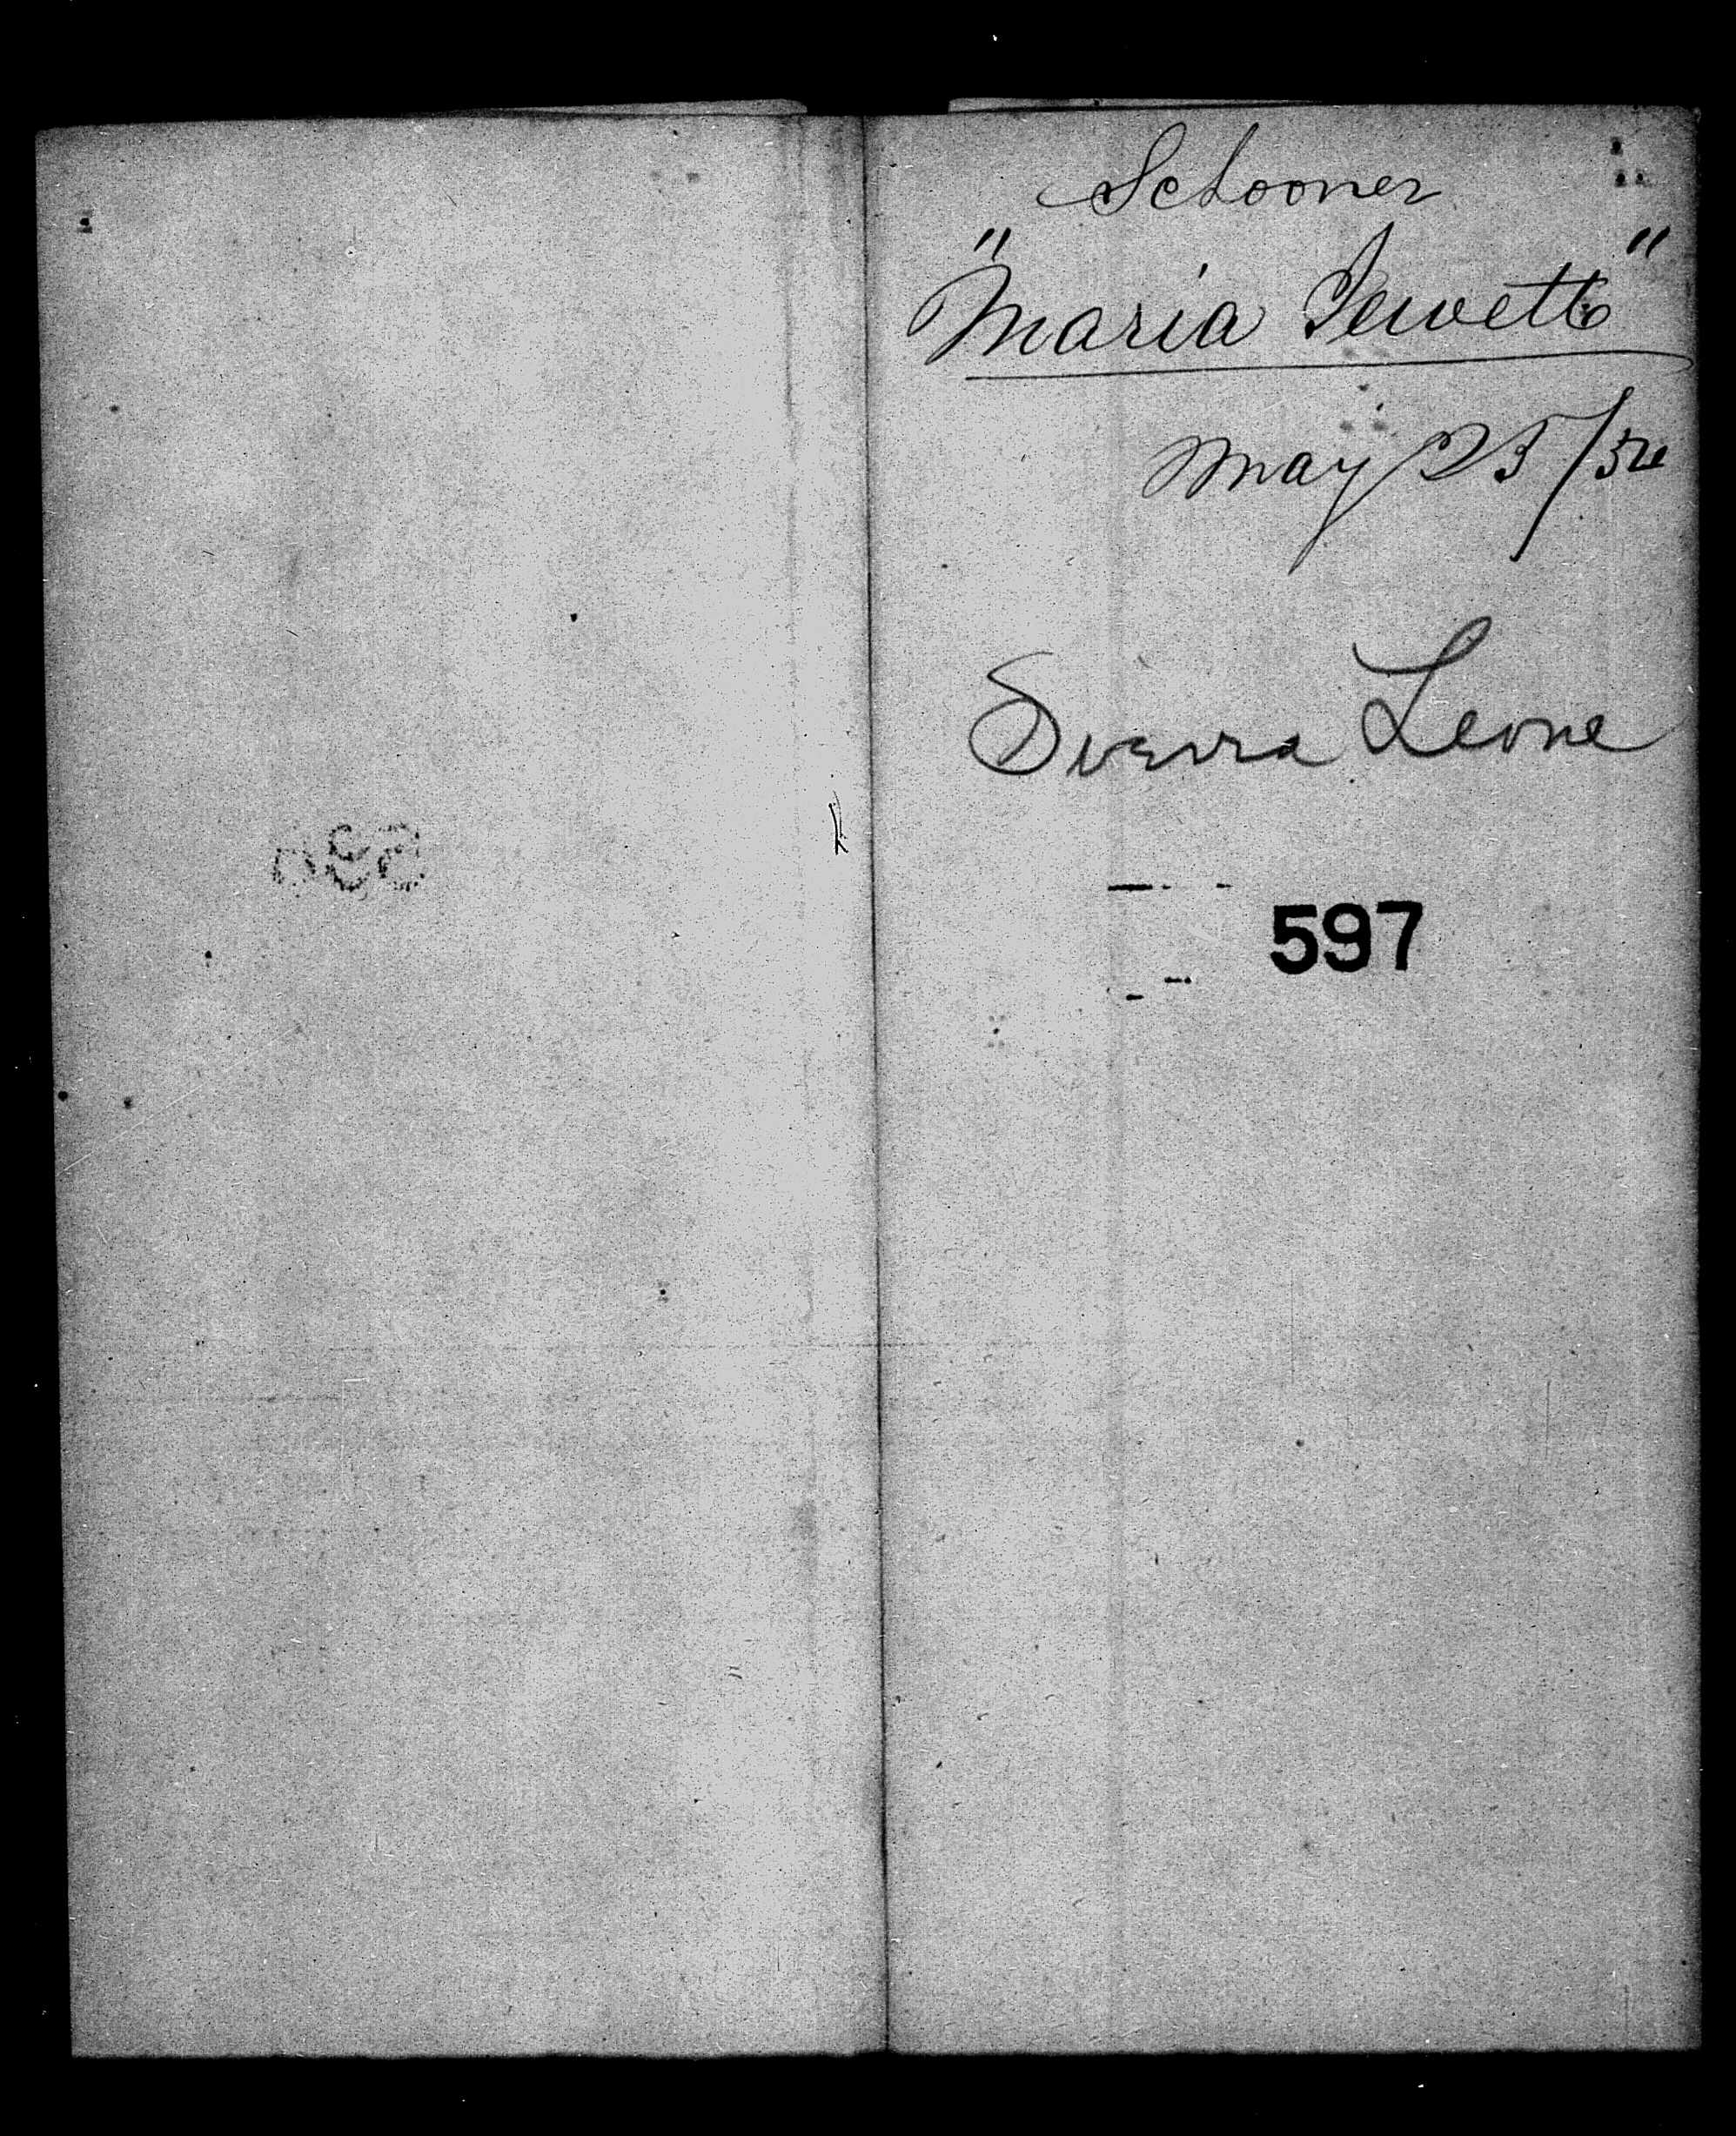 Schooner
"Maria Jewett"
May 25/54
Sierra Leone
597